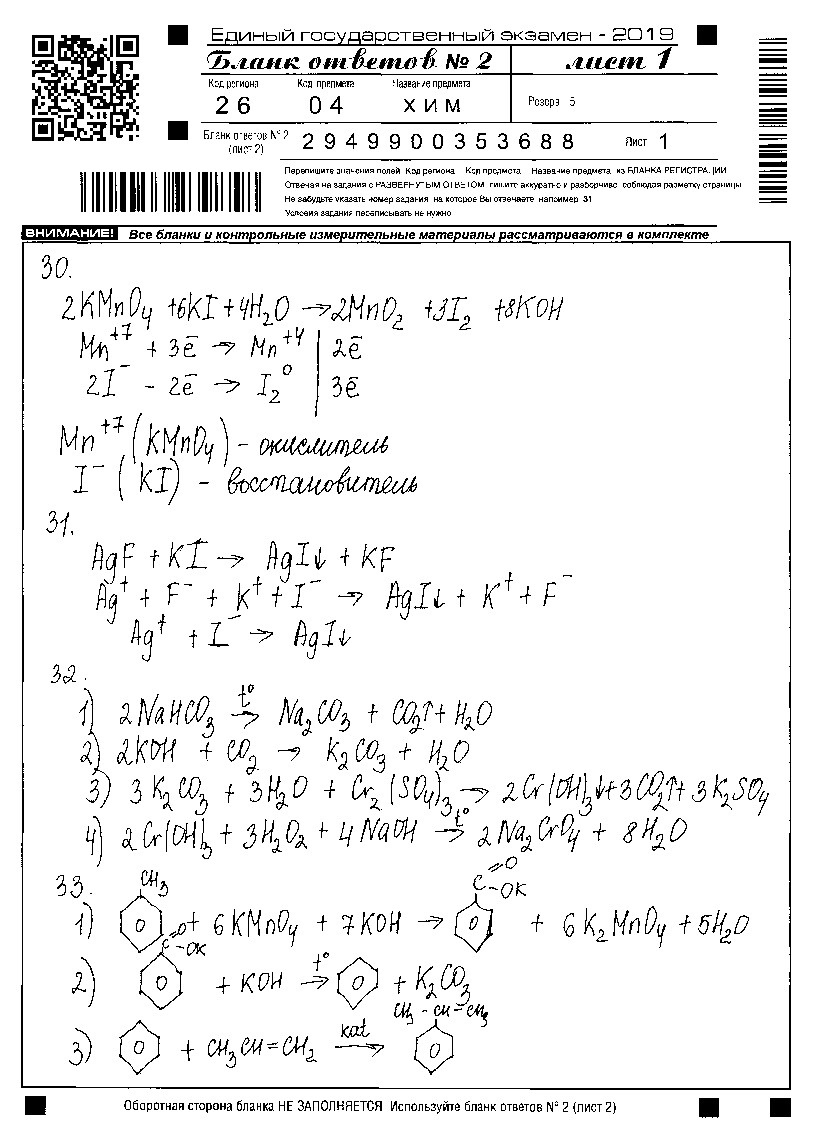 Единый государственный экзамен - 2019
Бланк ответов № 2 лист 1
Код региона Код предмета Название предмета
26 04 ХИМ Резерв - 5
Бланк ответов № 2 (лист 2) 2949900353688 Лист 1
Перепишите значения полей Код региона Код предмета Название предмета из БЛАНКА РЕГИСТРАЦИИ
Отвечая на задания с РАЗВЕРНУТЫМ ОТВЕТОМ пишите аккуратно и разборчиво соблюдая разметку страницы
Не забудьте указать номер задания на которое Вы отвечаете например 31
Условия задания переписывать не нужно
ВНИМАНИЕ! Все бланки и контрольные измерительные материалы рассматриваются в комплекте
30.
2KMnO₄ +6KI+4H₂O →2MnO₂ +3I₂ +8KOH
Mn⁺⁷ + 3ē → Mn⁺⁴ | 2ē
2I⁻ - 2ē → I₂⁰ | 3ē
Mn⁺⁷ (KMnO₄) - окислитель
I⁻ (KI) - восстановитель
31.
AgF + KI → AgI↓ + KF
Ag⁺ + F⁻ + K⁺ + I⁻ → AgI↓ + K⁺ + F⁻
Ag⁺ + I⁻ → AgI↓
32.
1) 2NaHCO₃ t°→ Na₂CO₃ + CO₂↑+ H₂O
2) 2KOH + CO₂ → K₂CO₃ + H₂O
3) 3K₂CO₃ + 3H₂O + Cr₂(SO₄)₃ → 2Cr(OH)₃↓+3CO₂↑+ 3K₂SO₄
4) 2Cr(OH)₃ + 3H₂O₂ + 4NaOH t°→ 2Na₂CrO₄ + 8H₂O
33.
CH₃ C=O -OK
1) + 6KMnO₄ + 7KOH → + 6K₂MnO₄ +5H₂O
C=O -OK
2) + KOH t°→ + K₂CO₃
CH₃ - CH - CH₃
3) + CH₃CH=CH₂ kat→
Оборотная сторона бланка НЕ ЗАПОЛНЯЕТСЯ Используйте бланк ответов № 2 (лист 2)